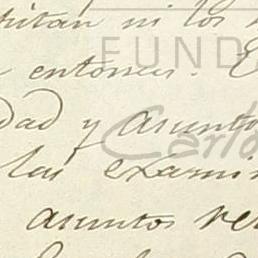 ni los
FUNDA
entonces.
dad y asunto
Carlo
las exami
asuntos re